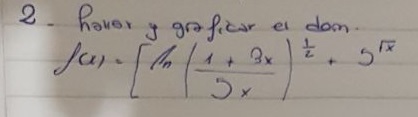 2. hallar y graficar el dom.
f(x) = [ln (1 + 3x / 5x)^1/2 + 5^√x